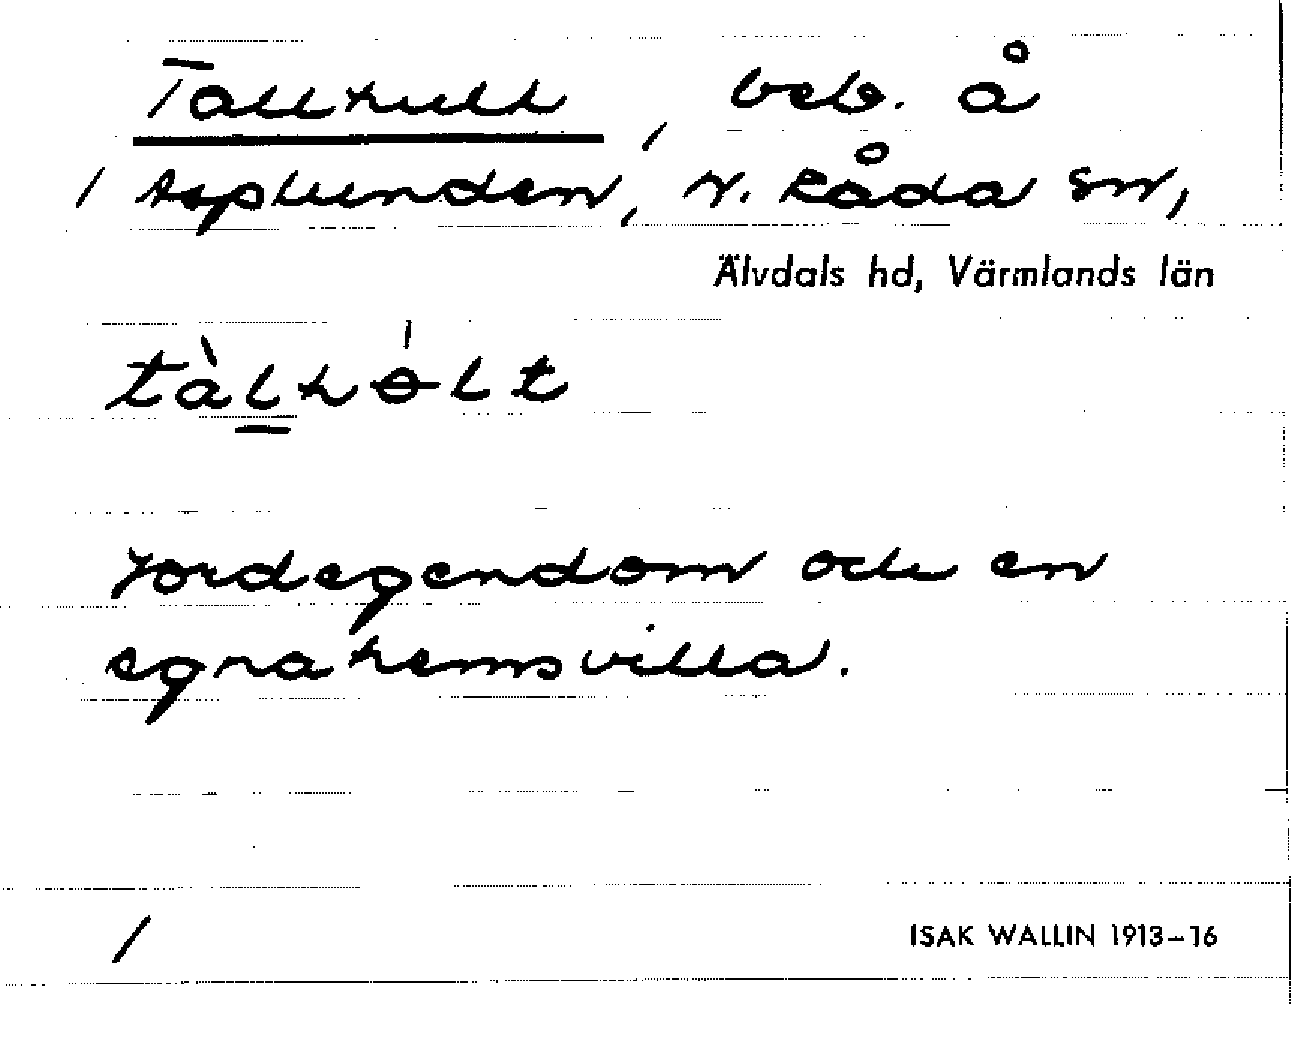 Tallhult, beb. å
/ Asplunden, N. Råda sn,
Älvdals hd, Värmlands län
tàl̳hɵ́lt
Jordegendom och en
egnahemsvilla.
/
ISAK WALLIN 1913–16